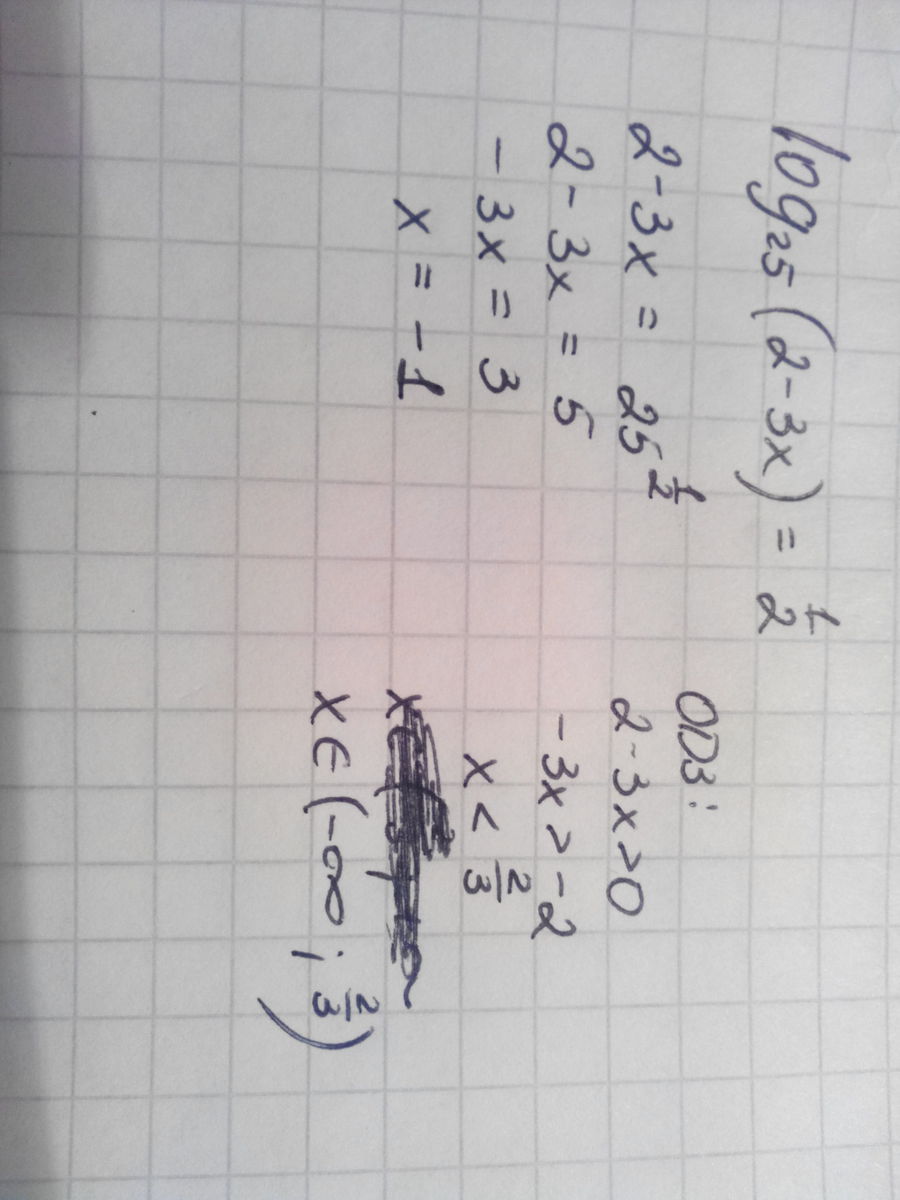 log₂₅(2-3x) = 1/2
2-3x = 25^(1/2)
2-3x = 5
-3x = 3
x = -1
ОДЗ:
2-3x>0
-3x>-2
x < 2/3
x∈(-∞; 2/3)